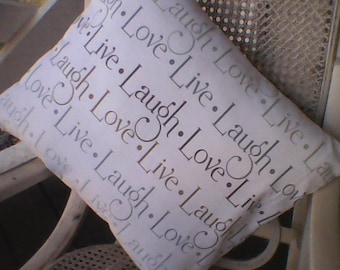 Laugh • Love
Love • Live • Laugh
Live • Laugh • Love • Live
Laugh • Love • Live • Laugh • Love
Live • Laugh • Love • Live
Laugh • Love • Live • Laugh
Live • Laugh • Love
Laugh • Love